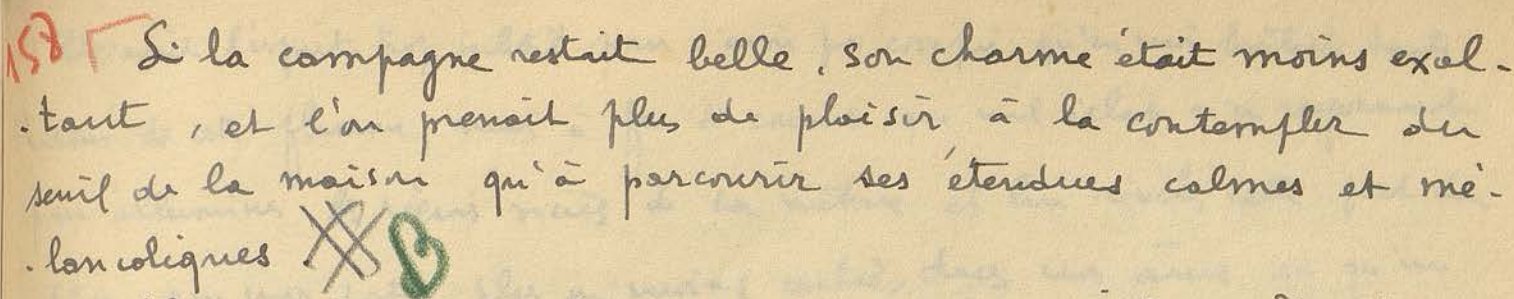 158 Si la campagne restait belle, son charme était moins exal-
-tant, et l'on prenait plus de plaisir, à la contempler du
seuil de la maison qu'à parcourir ses étendues calmes et mé-
-lancoliques. B